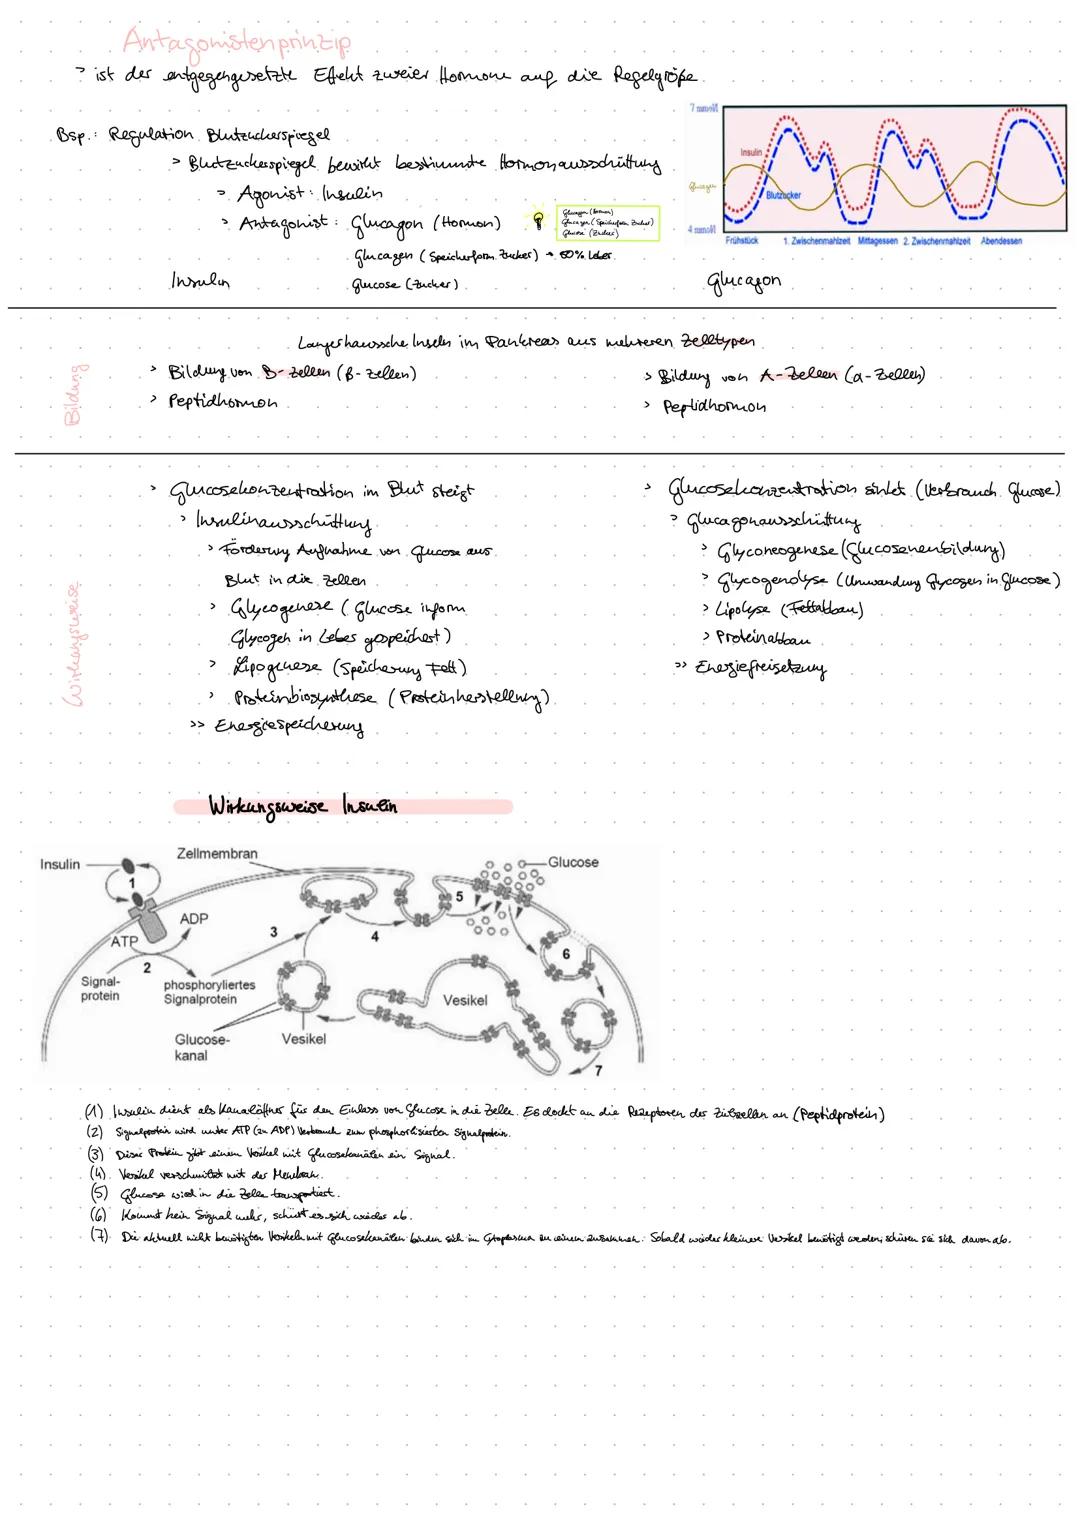 Antagonistenprinzip
> ist der entgegengesetzte Effekt zweier Hormone auf die Regelgröße
7 mmol/l
Insulin
Glucagon
Blutzucker
4 mmol/l
Frühstück 1. Zwischenmahlzeit Mittagessen 2. Zwischenmahlzeit Abendessen
Bsp.: Regulation Blutzuckerspiegel
> Blutzuckerspiegel bewirkt bestimmte Hormonausschüttung
> Agonist: Insulin
> Antagonist: Glucagon (Hormon)
Glucagon (Hormon)
Glucogen (Speicherform Zucker)
Glucose (Zucker)
Glucagen (Speicherform Zucker) → 80% Leber
Glucose (Zucker)
Insulin Glucagon
Bildung
Langerhanssche Inseln im Pankreas aus mehreren Zelltypen
> Bildung von B-Zellen (β-Zellen)
> Peptidhormon
> Bildung von A-Zellen (α-Zellen)
> Peptidhormon
Wirkungsweise
> Glucosekonzentration im Blut steigt
> Insulinausschüttung
> Förderung Aufnahme von Glucose aus
Blut in die Zellen
> Glycogenese (Glucose inform
Glycogen in Leber gespeichert)
> Lipogenese (Speicherung Fett)
> Proteinbiosynthese (Proteinherstellung)
>> Energiespeicherung
> Glucosekonzentration sinkt (Verbrauch Glucose)
> Glucagonausschüttung
> Glyconeogenese (Glucoseneubildung)
> Glycogenolyse (Umwandung Glycogen in Glucose)
> Lipolyse (Fettabbau)
> Proteinabbau
>> Energiefreisetzung
Wirkungsweise Insulin
Insulin
Zellmembran
Glucose
1
ADP
ATP
2
3
4
5
6
Signal-
protein
phosphoryliertes
Signalprotein
Vesikel
Glucose-
kanal
Vesikel
7
(1) Insulin dient als Kanalöffner für den Einlass von Glucose in die Zelle. Es dockt an die Rezeptoren der Zielzellen an (Peptidprotein)
(2) Signalprotein wird unter ATP (zu ADP) Verbrauch zum phosphorlisierten Signalprotein.
(3) Dieses Protein gibt einem Vesikel mit Glucosekanälen ein Signal.
(4) Vesikel verschmilzt mit der Membran.
(5) Glucose wird in die Zelle transportiert.
(6) Kommt kein Signal mehr, schnürt es sich wieder ab.
(7) Die aktuell nicht benötigten Vesikeln mit Glucosekanälen binden sich im Cytoplasma zu einem zusammen. Sobald wieder kleinere Vesikel benötigt werden, schnüren sie sich davon ab.